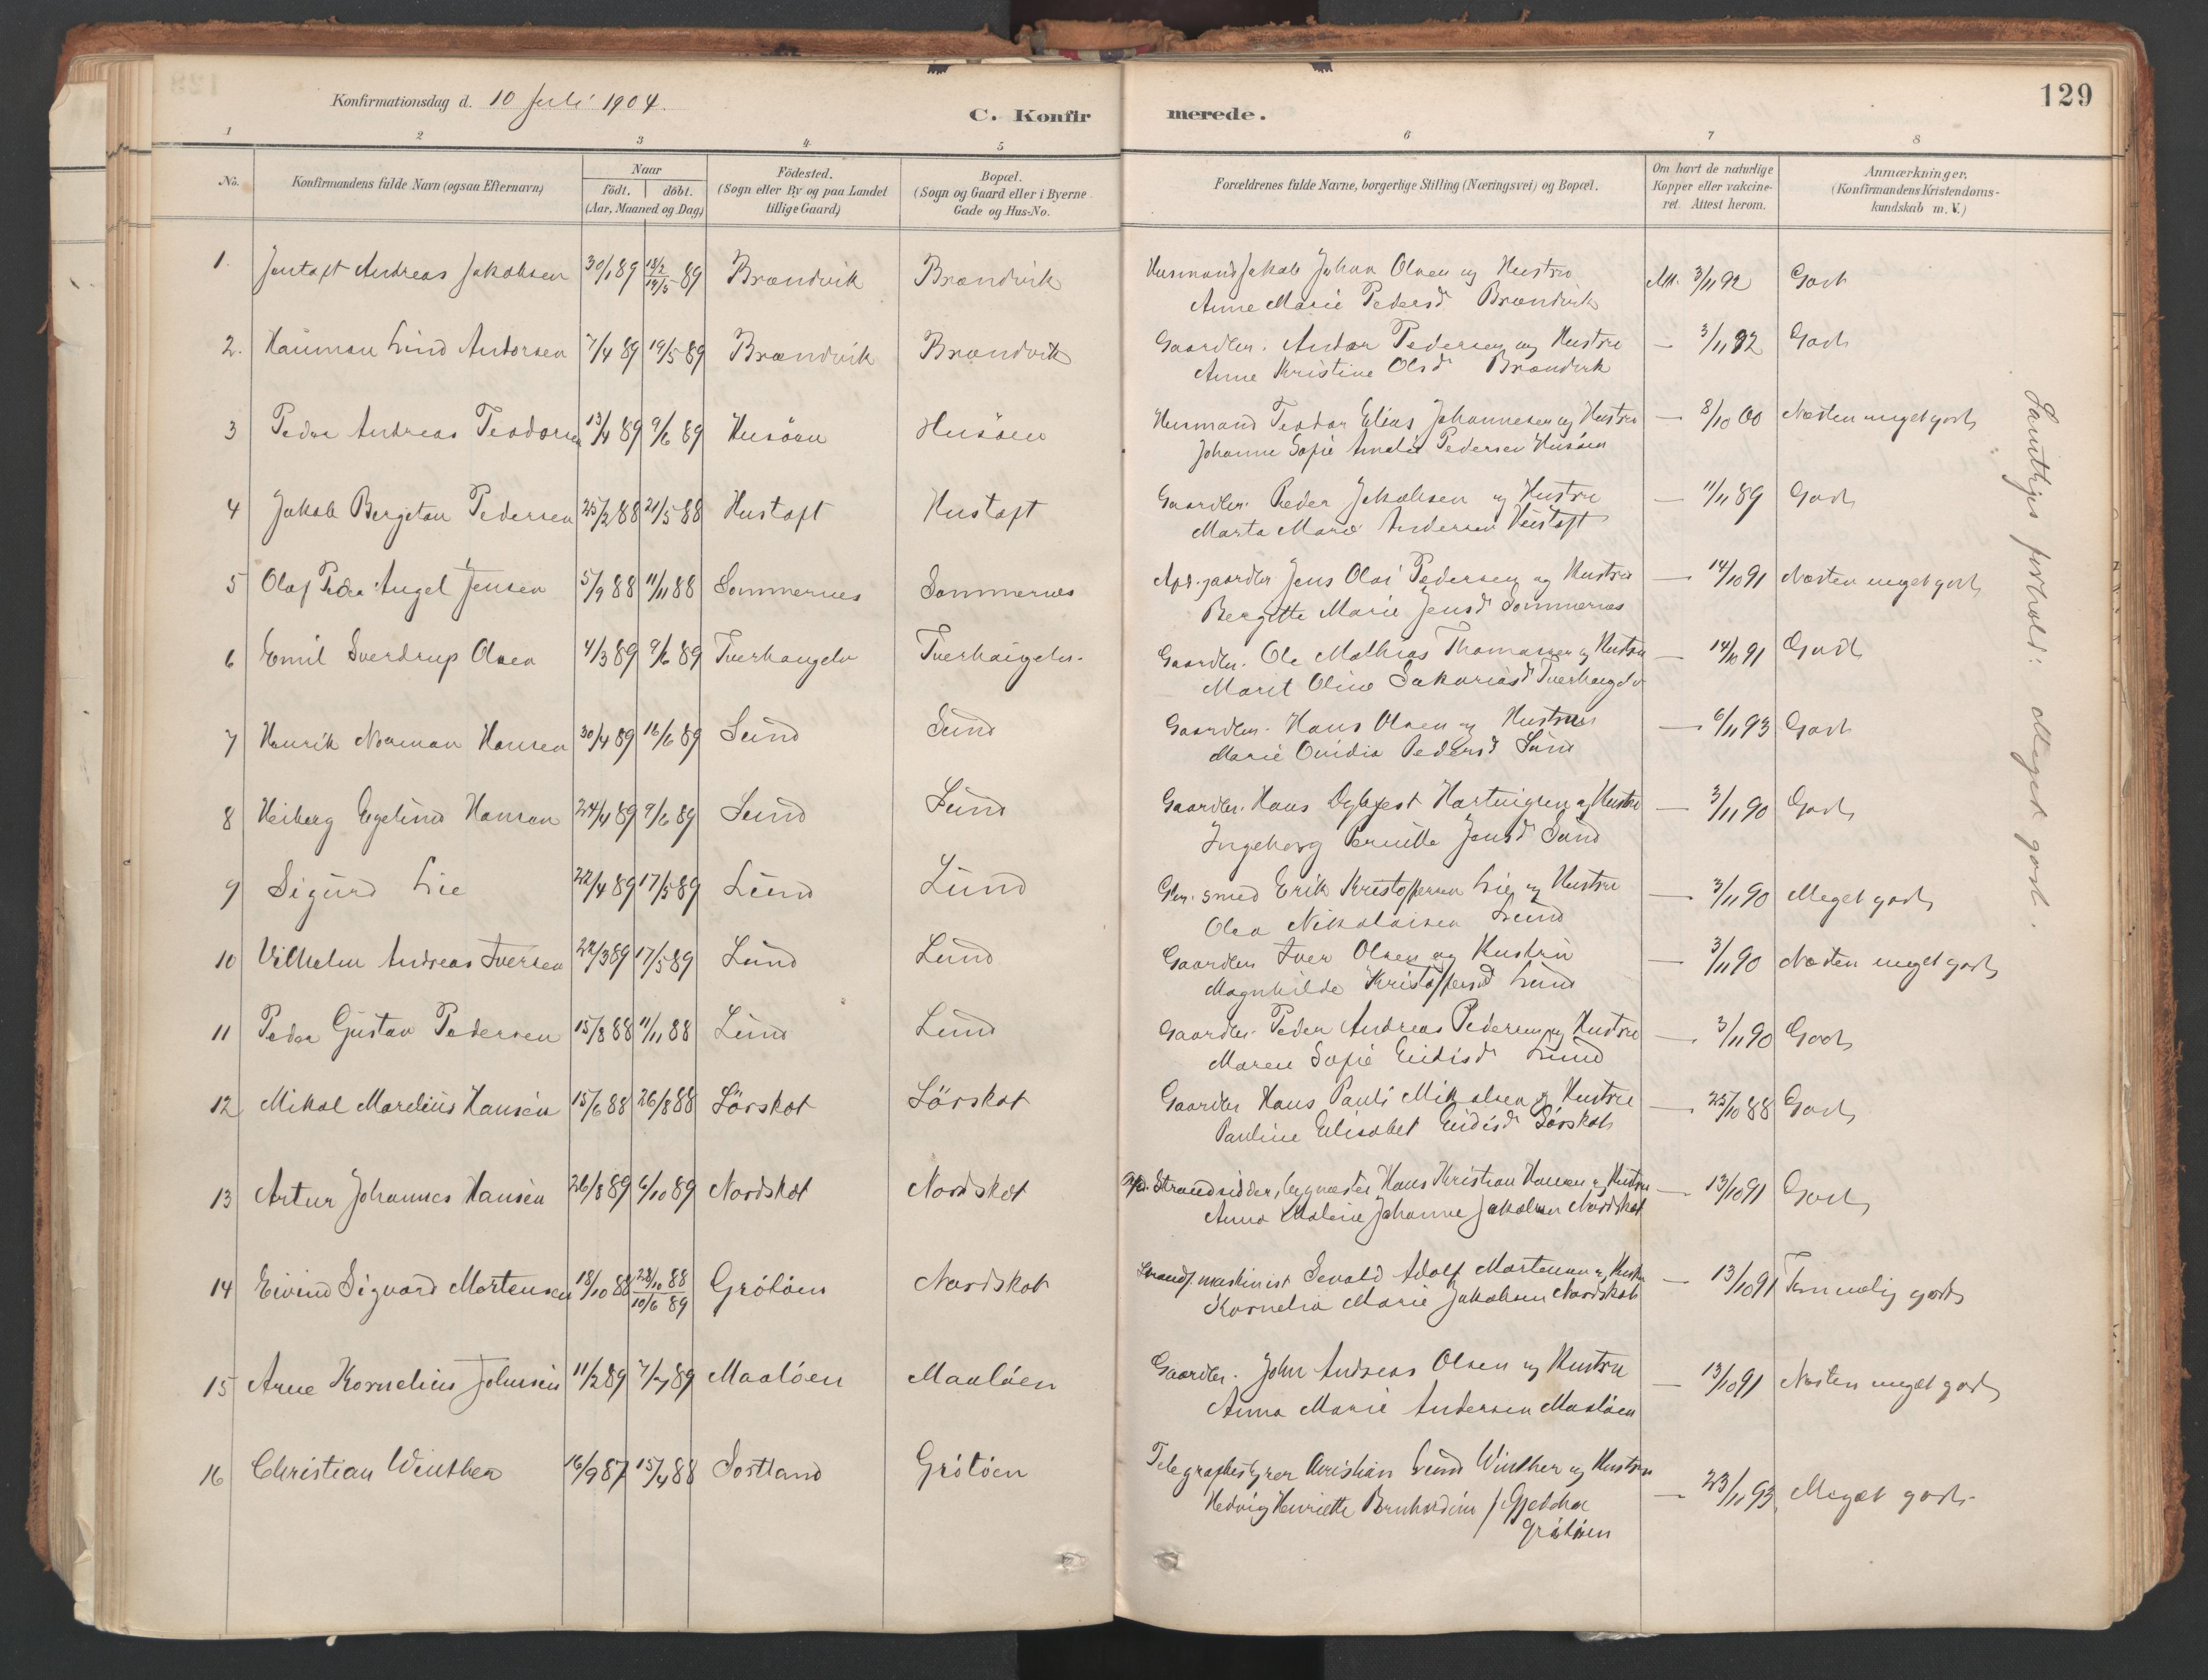 129
Konfirmationsdag d. 10 Juli 1904.
C. Konfirmerede.
1 2 3 4 5 6 7 8
No.
Konfirmandens fulde Navn (ogsaa Efternavn)
Naar
födt. döbt.
(Aar, Maaned og Dag)
Födested.
(Sogn eller By og paa Landet
tillige Gaard)
Bopæl.
(Sogn og Gaard eller i Byerne
Gade og Hus-No.
Forældrenes fulde Navne, borgerlige Stilling (Næringsvei) og Bopæl.
Om havt de naturlige
Kopper eller vakcine-
ret. Attest herom.
Anmærkninger.
(Konfirmandens Kristendoms-
kundskab m. V.)
1. Jentoft Andreas Jakobsen 30/1 89 18/2 89 Brændvik Brændvik Husmand Jakob Johan Olsen og Hustru 3/11 92 Godt
Anne Marie Pedersd Brændvik
2. Lind Andorsen 7/4 89 19/5 89 Brændvik Brændvik Gaardbr. Andor Pedersen og Hustru — 3/11 92 Godt
Anne Kristine Olsd Brændvik
3 Peder Andreas Teodorsen 13/4 89 9/6 89 Husöen Husöen Husmand Teodor Elias Johannesen og Hustru — 8/10 00 Næsten meget godt
Johanne Sofie Amalie Pedersen Husöen
4 Jakob Bergeton Pedersen 25/2 88 21/5 88 Hustoft Hustoft Gaardbr. Peder Jakobsen og Hustru — 11/11 89 Godt
Marta Marie Andersen Hustoft
5 Olaf Peder Angel Jensen 5/9 88 11/11 88 Sommernes Sommernes gaardbr. Jens Olai Pedersen og Hustru — 14/10 91 Næsten meget godt
Bergitte Marie Jensd Sommernes
6 Emil Sverdrup Olsen 4/3 89 9/6 89 Tverhaugelv Tverhaugelv. Gaardbr. Ole Mathias Thomassen og Hustru — 14/10 91 Godt
Marit Oline Sakariasd Tverhaugelv
7 Henrik Norman Hansen 30/4 89 16/6 89 Sund Sund Gaardbr. Hans Olsen og Hustru — 6/11 93 Godt
Marie Ovidia Pedersd Sund
8 Heiberg Egelund Hansen 24/4 89 9/6 89 Sund Sund Gaardbr. Hans Dybfest Hartvigsen og Hustru — 3/11 90 Godt
Ingeborg Pernille Jensd Sund
9 Sigurd Lie 22/4 89 17/5 89 Lund Lund Gbr. smed Erik Kristoffersen Lie og Hustru — 3/11 90 Meget godt
Olea Nikolaisen Lund
10 Vilhelm Andreas Iversen 22/3 89 17/5 89 Lund Lund Gaardbr. Iver Olsen og Hustru — 3/11 90 Næsten meget godt
Magnhilde Kristoffersd Lund
11 Peder Gustav Pedersen 15/8 88 11/11 88 Lund Lund Gaardbr. Peder Andreas Pedersen og Hustru — 3/11 90 Godt
Maren Sofie Eidisd Lund
12 Mikal Mardius Hansen 15/6 88 26/8 88 Sörskot Sörskot Gaardbr Hans Pauli Mikalsen og Hustru — 25/10 88 Godt
Pauline Elisabet Eidisd Sörskot
13 Artur Johannes Hansen 26/8 89 6/10 89 Nordskot Nordskot Strandsidder, bygmester Hans Kristian Hansen og Hustru — 13/10 91 Godt
Anna Malene Johanne Jakobsen Nordskot
14 Eivind Sigvard Mortensen 18/10 88 28/10 88 10/6 89 Grötöen Nordskot maskinist Sevald Adolf Mortensen og Hustru — 13/10 91 Temmelig godt
Kornelia Marie Jakobsen Nordskot
15 Arne Kornelius Johnsen 11/2 89 7/7 89 Maalöen Maalöen Gaardbr. John Andreas Olsen og Hustru — 13/10 91 Næsten meget godt
Anna Marie Andersen Maalöen
16 Christian Winther 16/9 87 15/4 88 Sortland Grötöen Telegrafbestyrer Christian Lund Winther og Hustru — 23/11 93 Meget godt
Hedvig Henriette f. Gjedebo
Grötöen
Samtliges forhold: Meget godt.